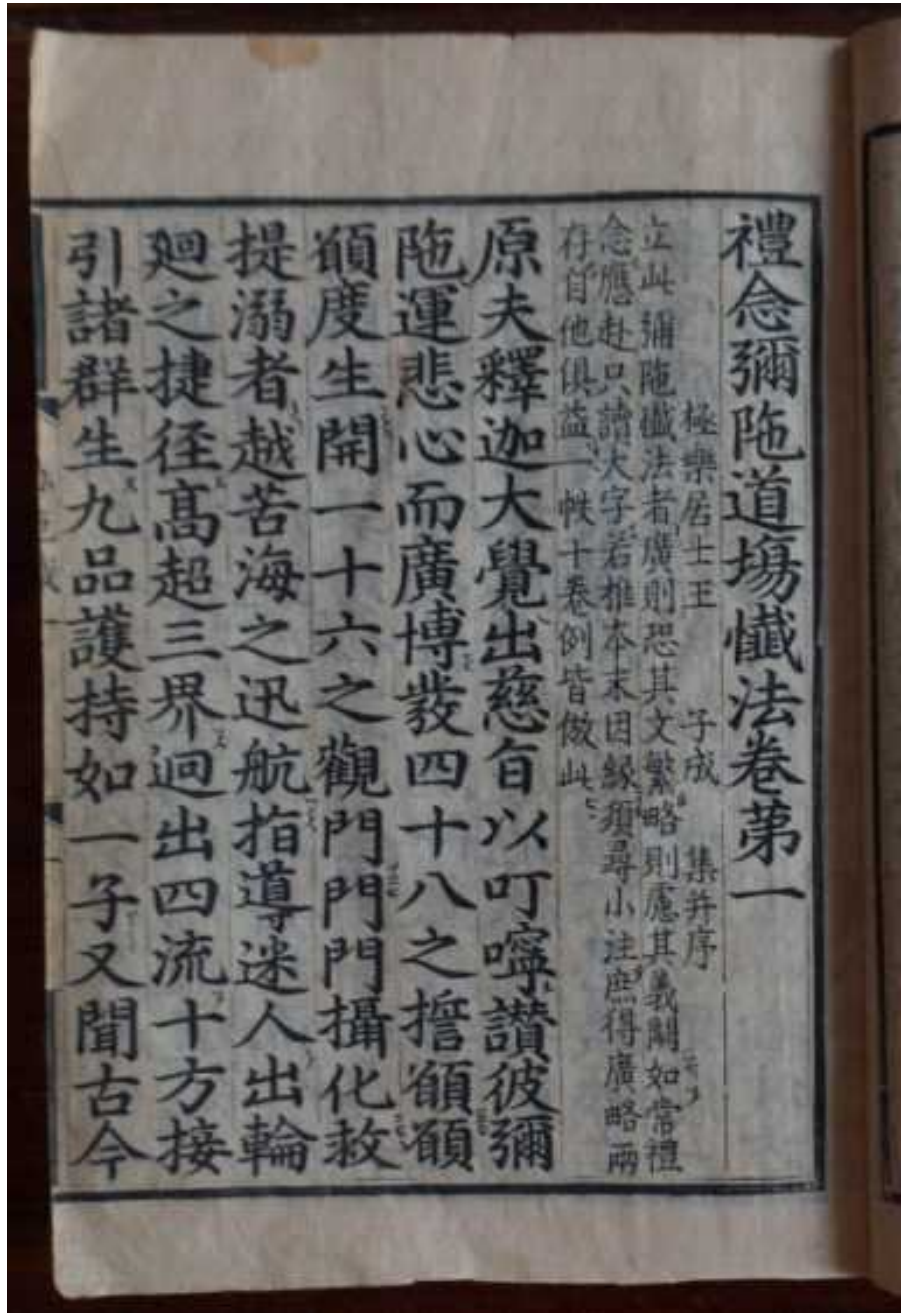 禮念彌陁道塲懺法卷第一
極樂居士王 子成 集并序
立此彌陁懺法者廣則恐其文繁略則慮其義闕如常禮
念應赴只讀大字若推夲末因縁須尋小注庶得廣略兩
存自他俱益一帙十卷例皆倣此
原夫釋迦大覺出慈旨以叮嚀讃彼彌
陁運悲心而廣博發四十八之誓願願
願度生開一十六之觀門門門攝化救
提溺者越苦海之迅航指導迷人出輪
廻之捷徑髙超三界迥出四流十方接
引諸群生九品護持如一子又聞古今